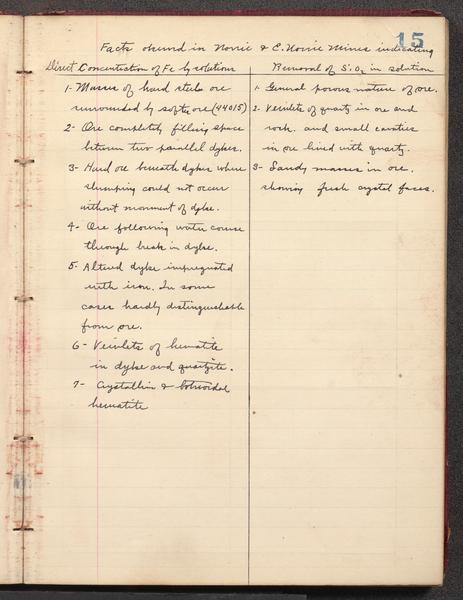 15
Facts observed in Norrie & E. Norrie Mines indicating
Direct Concentration of Fe by solutions
1- Masses of hard steel ore
surrounded by softer ore (44015)
2- Ore completely filling space
between two parallel dykes.
3- Hard ore beneath dykes where
slumping could not occur
without movement of dyke.
4- Ore following water course
through break in dyke.
5- Altered dyke impregnated
with iron. In some
cases hardly distinguishable
from ore.
6- Veinlets of hematite
in dyke and quartzite.
7- Crystallin & botryoidal
hematite
Removal of SiO2 in solution
1- General porous nature of ore.
2- Veinlets of quartz in ore and
rock. and small cavities
in ore lined with quartz.
3- Sandy masses in ore.
showing fresh crystal faces.